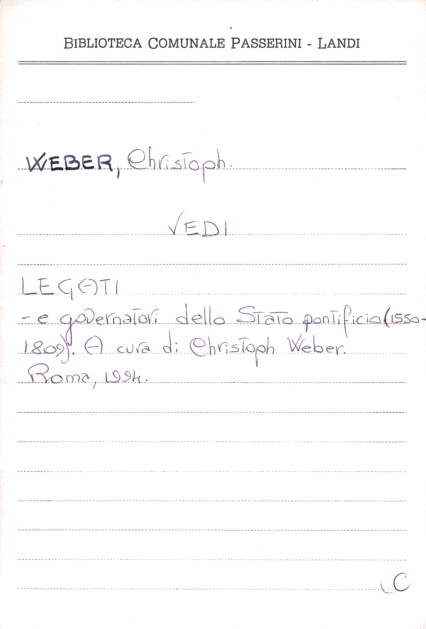 BIBLIOTECA COMUNALE PASSERINI - LANDI
WEBER, Christoph.
VEDI
LEGATI
- e governatori dello Stato pontificio (1550-
1809). A cura di Christoph Weber.
Roma, 1994.
C